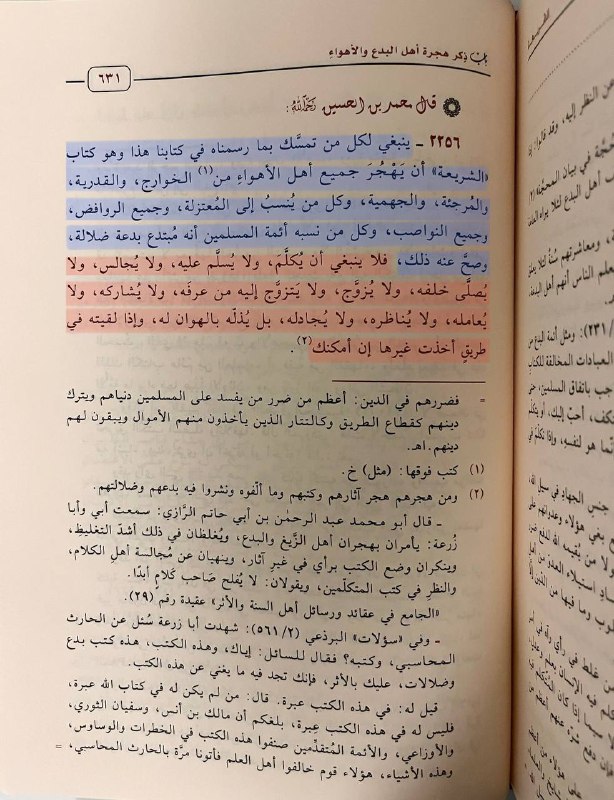 باب ذِكر هجرة أهل البدع والأهواءِ
٦٣١
قال محمد بن الحسين رَحِمَهُ اللهُ:
٢٢٥٦ ـ ينبغي لكل من تمسَّك بما رسمناه في كتابنا هذا وهو كتاب
«الشريعة» أن يَهْجُرَ جميع أهل الأهواءِ من(١) الخوارج، والقدرية،
والمُرجئة، والجهمية، وكل من يُنسبُ إلى المُعتزلة، وجميع الروافض،
وجميع النواصب، وكل من نسبه أئمة المسلمين أنه مُبتدع بدعة ضلالة،
وصحَّ عنه ذلك، فلا ينبغي أن يُكلَّمَ، ولا يُسلَّم عليه، ولا يُجالس، ولا
يُصلَّى خلفه، ولا يُزوَّج، ولا يَتزوَّج إليه من عرفَه، ولا يُشاركه، ولا
يُعامله، ولا يُناظره، ولا يُجادله، بل يُذلّه بالهوان له، وإذا لقيته في
طريقٍ أخذت غيرها إن أمكنك(٢).
= فضررهم في الدين: أعظم من ضرر من يفسد على المسلمين دنياهم ويترك
دينهم كقطاع الطريق وكالتتار الذين يأخذون منهم الأموال ويبقون لهم
دينهم.اهـ.
(١) كتب فوقها: (مثل) خ.
(٢) ومن هجرهم هجر آثارهم وكتبهم وما ألّفوه ونشروا فيه بدعهم وضلالتهم.
ـ قال أبو محمد عبد الرحمٰن بن أبي حاتم الرَّازي: سمعت أبي وأبا
زُرعة: يأمران بهجران أهل الزَّيغ والبدع، ويُغلظان في ذلك أشدَّ التغليظ،
وينكران وضع الكتب برأي في غيرِ آثار، وينهيان عن مُجالسة أهلِ الكلام،
والنظرِ في كتب المتكلّمين، ويقولان: لا يُفلح صَاحب كَلامٍ أبدًا.
«الجامع في عقائد ورسائل أهل السنة والأثر» عقيدة رقم (٢٩).
ـ وفي «سؤلات» البرذعي (٥٦١/٢): شهدت أبا زرعة سُئل عن الحارث
المحاسبي، وكتبه؟ فقال للسائل: إياك، وهذه الكتب، هذه كتب بدع
وضلالات، عليك بالأثر، فإنك تجد فيه ما يغني عن هذه الكتب.
قيل له: في هذه الكتب عبرة. قال: من لم يكن له في كتاب الله عبرة،
فليس له في هذه الكتب عِبرة، بلغكم أن مالك بن أنس، وسفيان الثوري،
والأوزاعي، والأئمة المُتقدِّمين صنفوا هذه الكتب في الخطرات والوساوس،
وهذه الأشياء، هؤلاء قوم خالفوا أهل العلم فأتونا مرَّة بالحارث المحاسبي، =